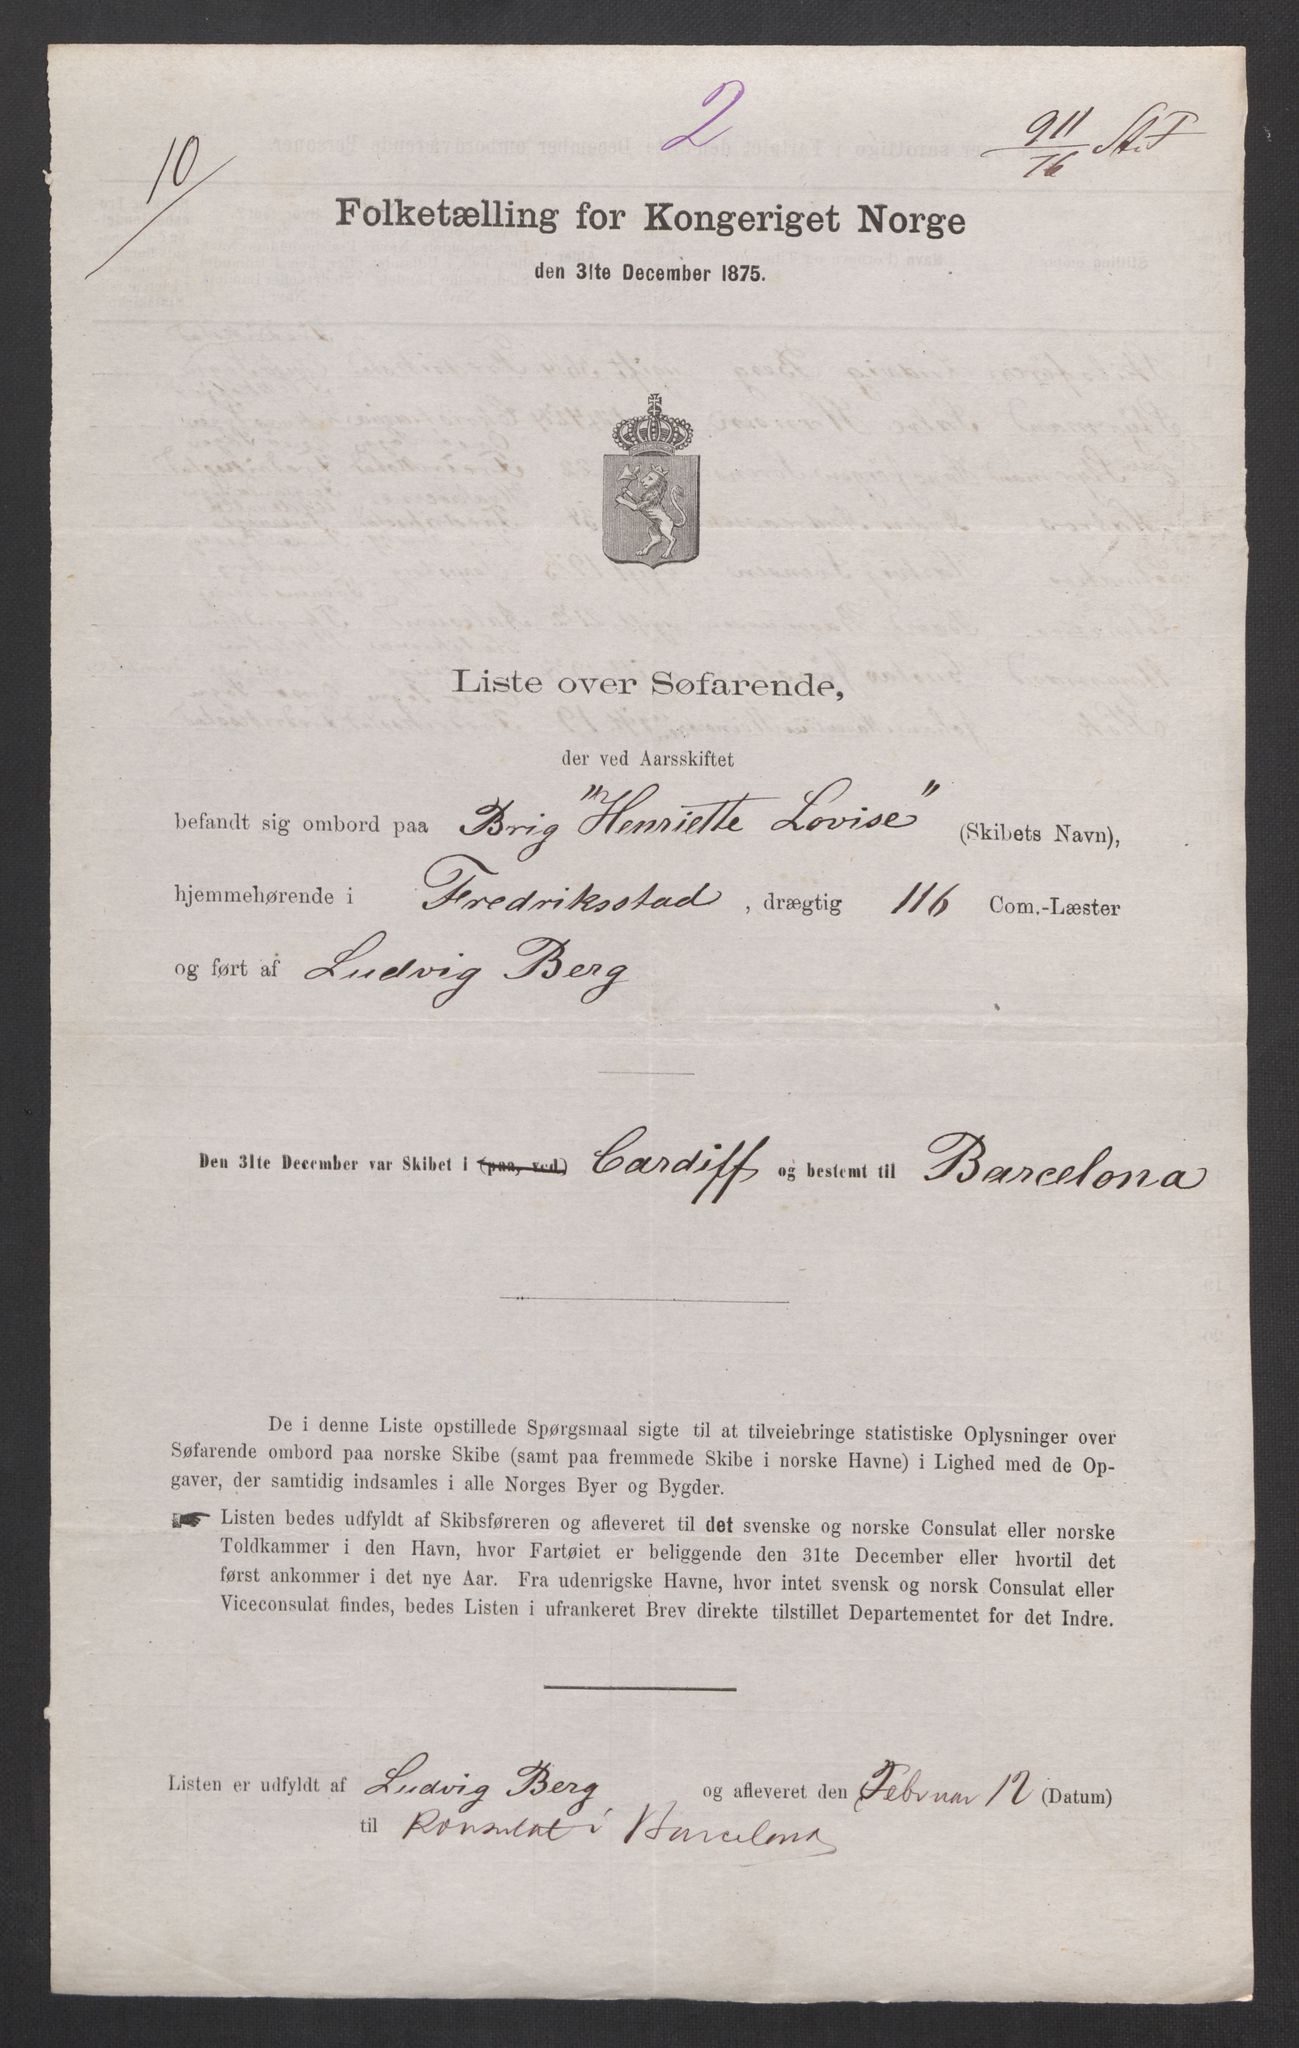 10
2
911/76 St.F
Folketælling for Kongeriget Norge
den 31te December 1875.
Liste over Søfarende,
der ved Aarsskiftet
befandt sig ombord paa Brig "Henriette Lovise" (Skibets Navn),
hjemmehørende i Fredriksstad, drægtig 116 Com.-Læster
og ført af Ludvig Berg
Den 31te December var Skibet i (paa, ved) Cardiff og bestemt til Barcelona
De i denne Liste opstillede Spørgsmaal sigte til at tilveiebringe statistiske Oplysninger over
Søfarende ombord paa norske Skibe (samt paa fremmede Skibe i norske Havne) i Lighed med de Op-
gaver, der samtidig indsamles i alle Norges Byer og Bygder.
Listen bedes udfyldt af Skibsføreren og afleveret til det svenske og norske Consulat eller norske
Toldkammer i den Havn, hvor Fartøiet er beliggende den 31te December eller hvortil det
først ankommer i det nye Aar. Fra udenrigske Havne, hvor intet svensk og norsk Consulat eller
Viceconsulat findes, bedes Listen i ufrankeret Brev direkte tilstillet Departementet for det Indre.
Listen er udfyldt af Ludvig Berg og afleveret den Februar 12 (Datum)
til Konsulat i Barcelona